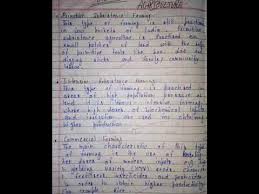 AGRICULTURE
Primitive Subsistence Farming
This type of farming is still practised
in few pockets of India. Primitive
subsistence agriculture is practised on
small patches of land with the help
of primitive tools like hoe, dao and
digging sticks and family/community
labour
Intensive Subsistence Farming
This type of farming is practised
areas of high population pressure
land. It is labour intensive farming
where high doses of biochemical inputs
and irrigation are used for obtaining
higher production.
Commercial Farming
The main characteristic of this type
of farming is the use of
doses of modern inputs
yielding variety (HYV) seeds, chemical
insecticides and pesticides
in order to obtain higher